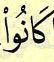 كَانُوا۟